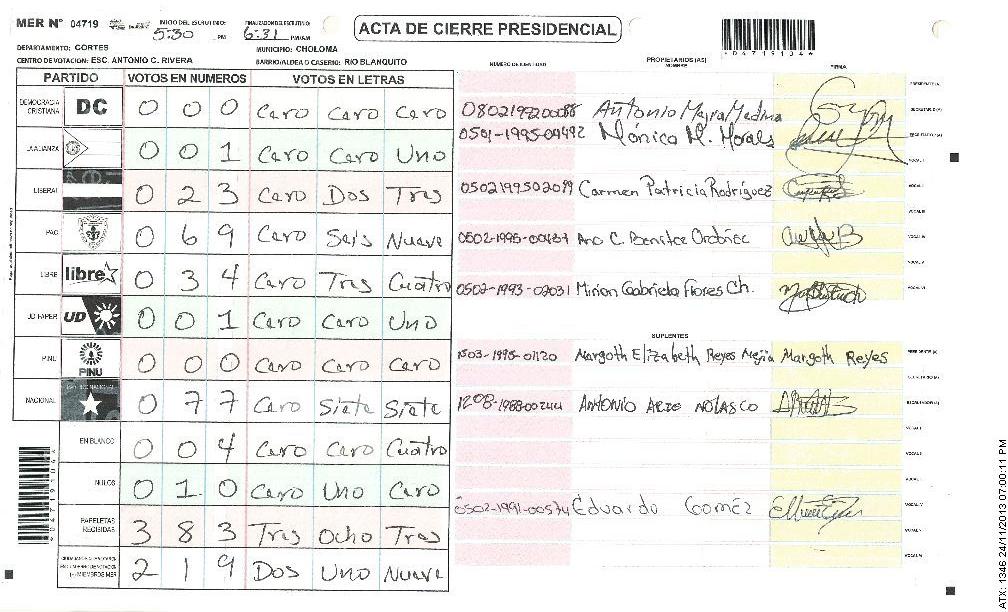 MER N° 04719
INICIO DEL ESCRUTINIO: 5:30 PM
FINALIZACION DEL ESCRUTINIO: 6:31 PM/AM
ACTA DE CIERRE PRESIDENCIAL
DEPARTAMENTO: CORTES
MUNICIPIO: CHOLOMA
CENTRO DE VOTACION: ESC. ANTONIO C. RIVERA
BARRIO/ALDEA O CASERIO: RIO BLANQUITO
NUMERO DE IDENTIDAD PROPIETARIOS (AS) NOMBRE FIRMA
PARTIDO VOTOS EN NUMEROS VOTOS EN LETRAS
DEMOCRACIA CRISTIANA DC 0 0 0 Cero Cero Cero
LA ALIANZA 0 0 1 Cero Cero Uno
LIBERAL 0 2 3 Cero Dos Tres
PAC 0 6 9 Cero Seis Nueve
LIBRE libre 0 3 4 Cero Tres Cuatro
UD FAPER UD 0 0 1 Cero Cero Uno
PINU PINU 0 0 0 Cero Cero Cero
NACIONAL 0 7 7 Cero Siete Siete
EN BLANCO 0 0 4 Cero Cero Cuatro
NULOS 0 1 0 Cero Uno Cero
PAPELETAS RECIBIDAS 3 8 3 Tres Ocho Tres
2 1 9 Dos Uno Nueve
Antonio Mejia Medina
Mónica M. Morales
Carmen Patricia Rodríguez
0502-1993-02031 Mirian Gabriela Flores Ch.
SUPLENTES
1503-1995-01120 Margoth Elizabeth Reyes Mejia Margoth Reyes
1208-1988-00244 ANTONIO
Eduardo Goméz
ATX: 1346 24/11/2013 07:00:11 PM